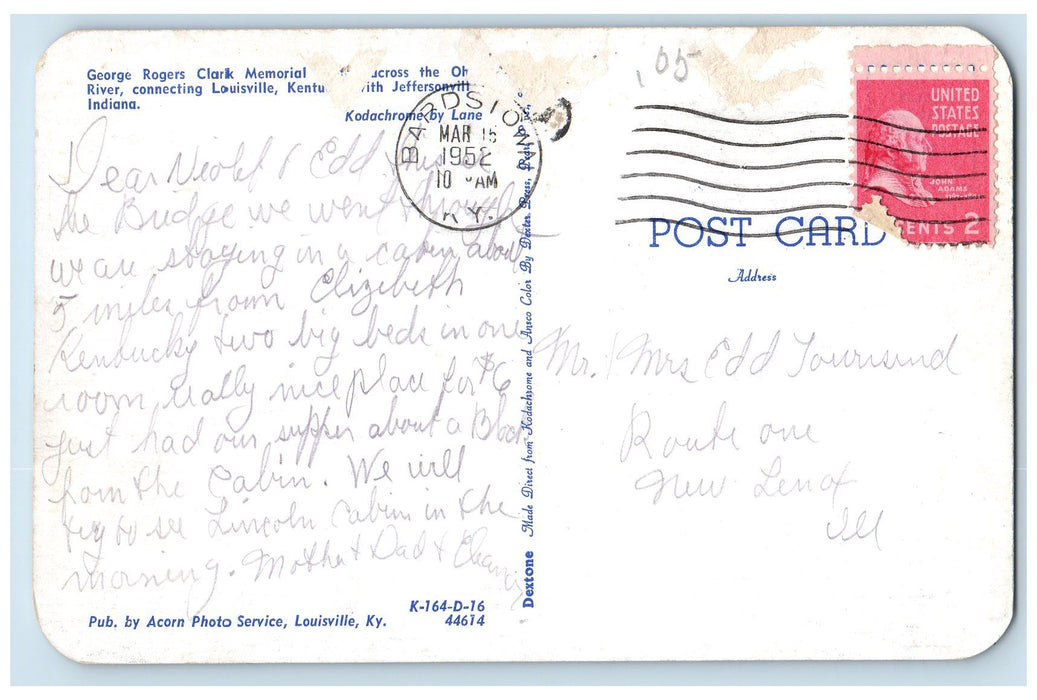 George Rogers Clark Memorial across the Oh
River, connecting Louisville, Kentu ith Jeffersonvill
Indiana.
Kodachrome by Lane
Dear Violet & Edd this is
the Bridge we went through
we are staying in a cabin about
5 miles from Elizebeth
Kentucky two big beds in one
room, really nice place for $6
just had our supper about a Block
from the Cabin. We will
try to see Lincoln Cabin in the
morning. Mother & Dad &
Pub. by Acorn Photo Service, Louisville, Ky.
K-164-D-16
44614
Dextone
Made Direct from Kodachrome and Ansco Color By Dexter Press, Pearl
BARDSTOWN
MAR 15
1952
10 AM
KY.
.05
UNITED
STATES
POSTAGE
JOHN
ADAMS
CENTS 2
POST CARD
Address
Mr. & Mrs Edd Townsend
Route one
New Lenox
Ill